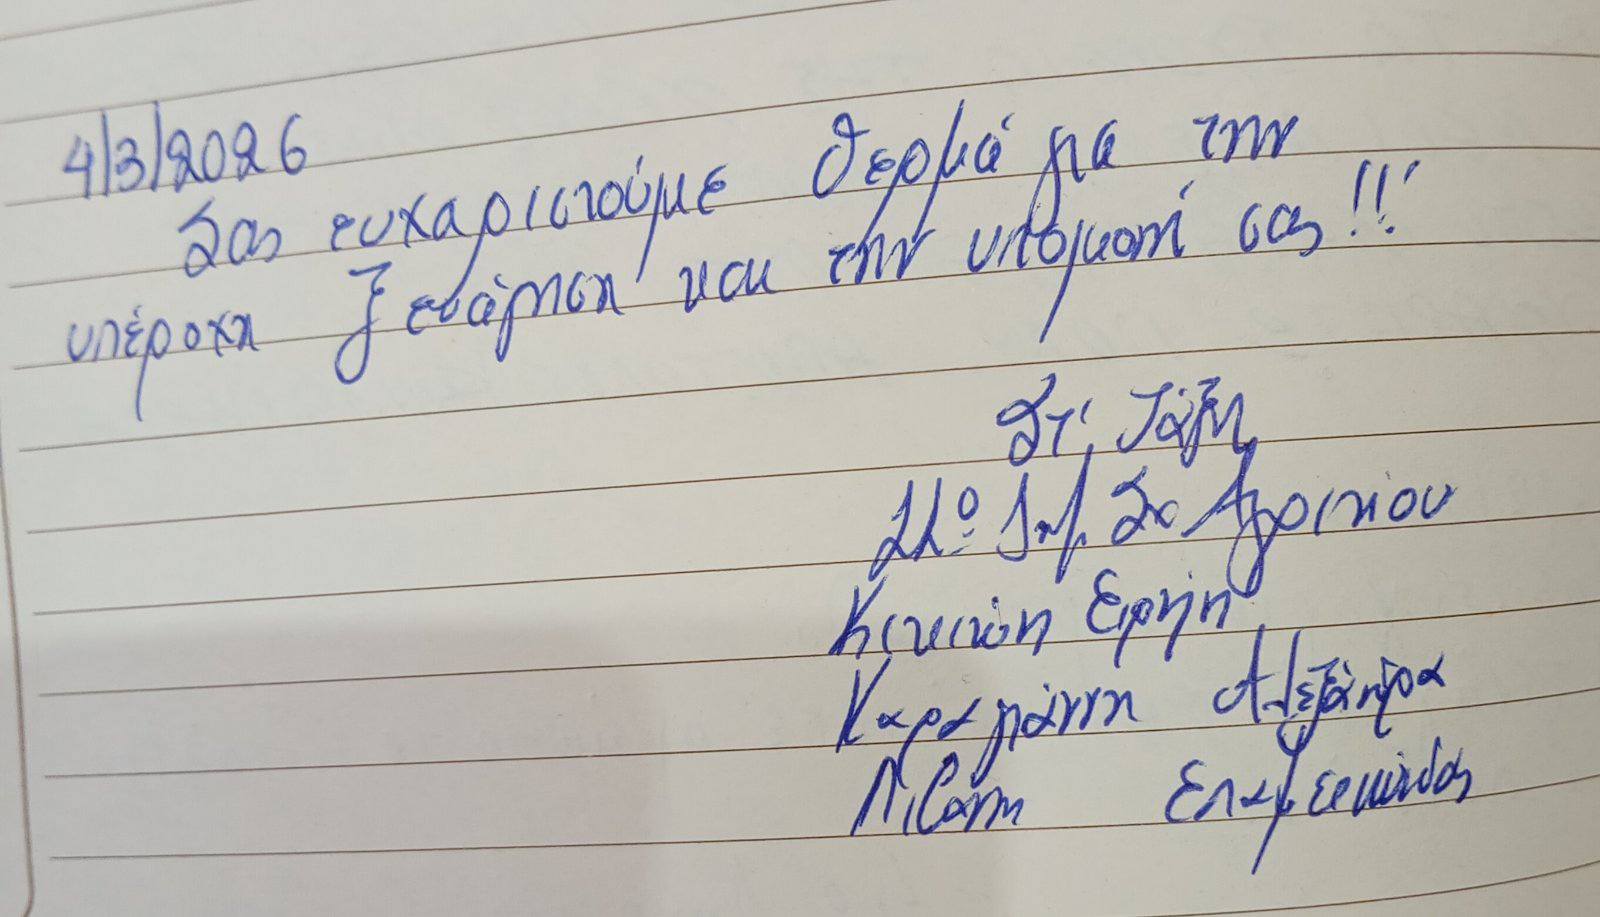 4/3/2026
Σας ευχαριστούμε θερμά για την
υπέροχη ξενάγηση και την υπομονή σας!!!
Στ' Τάξη
11º Δημ. Σχ Αγρινίου
Ειρήνη
Καραγιάννη Αλεξάνδρα